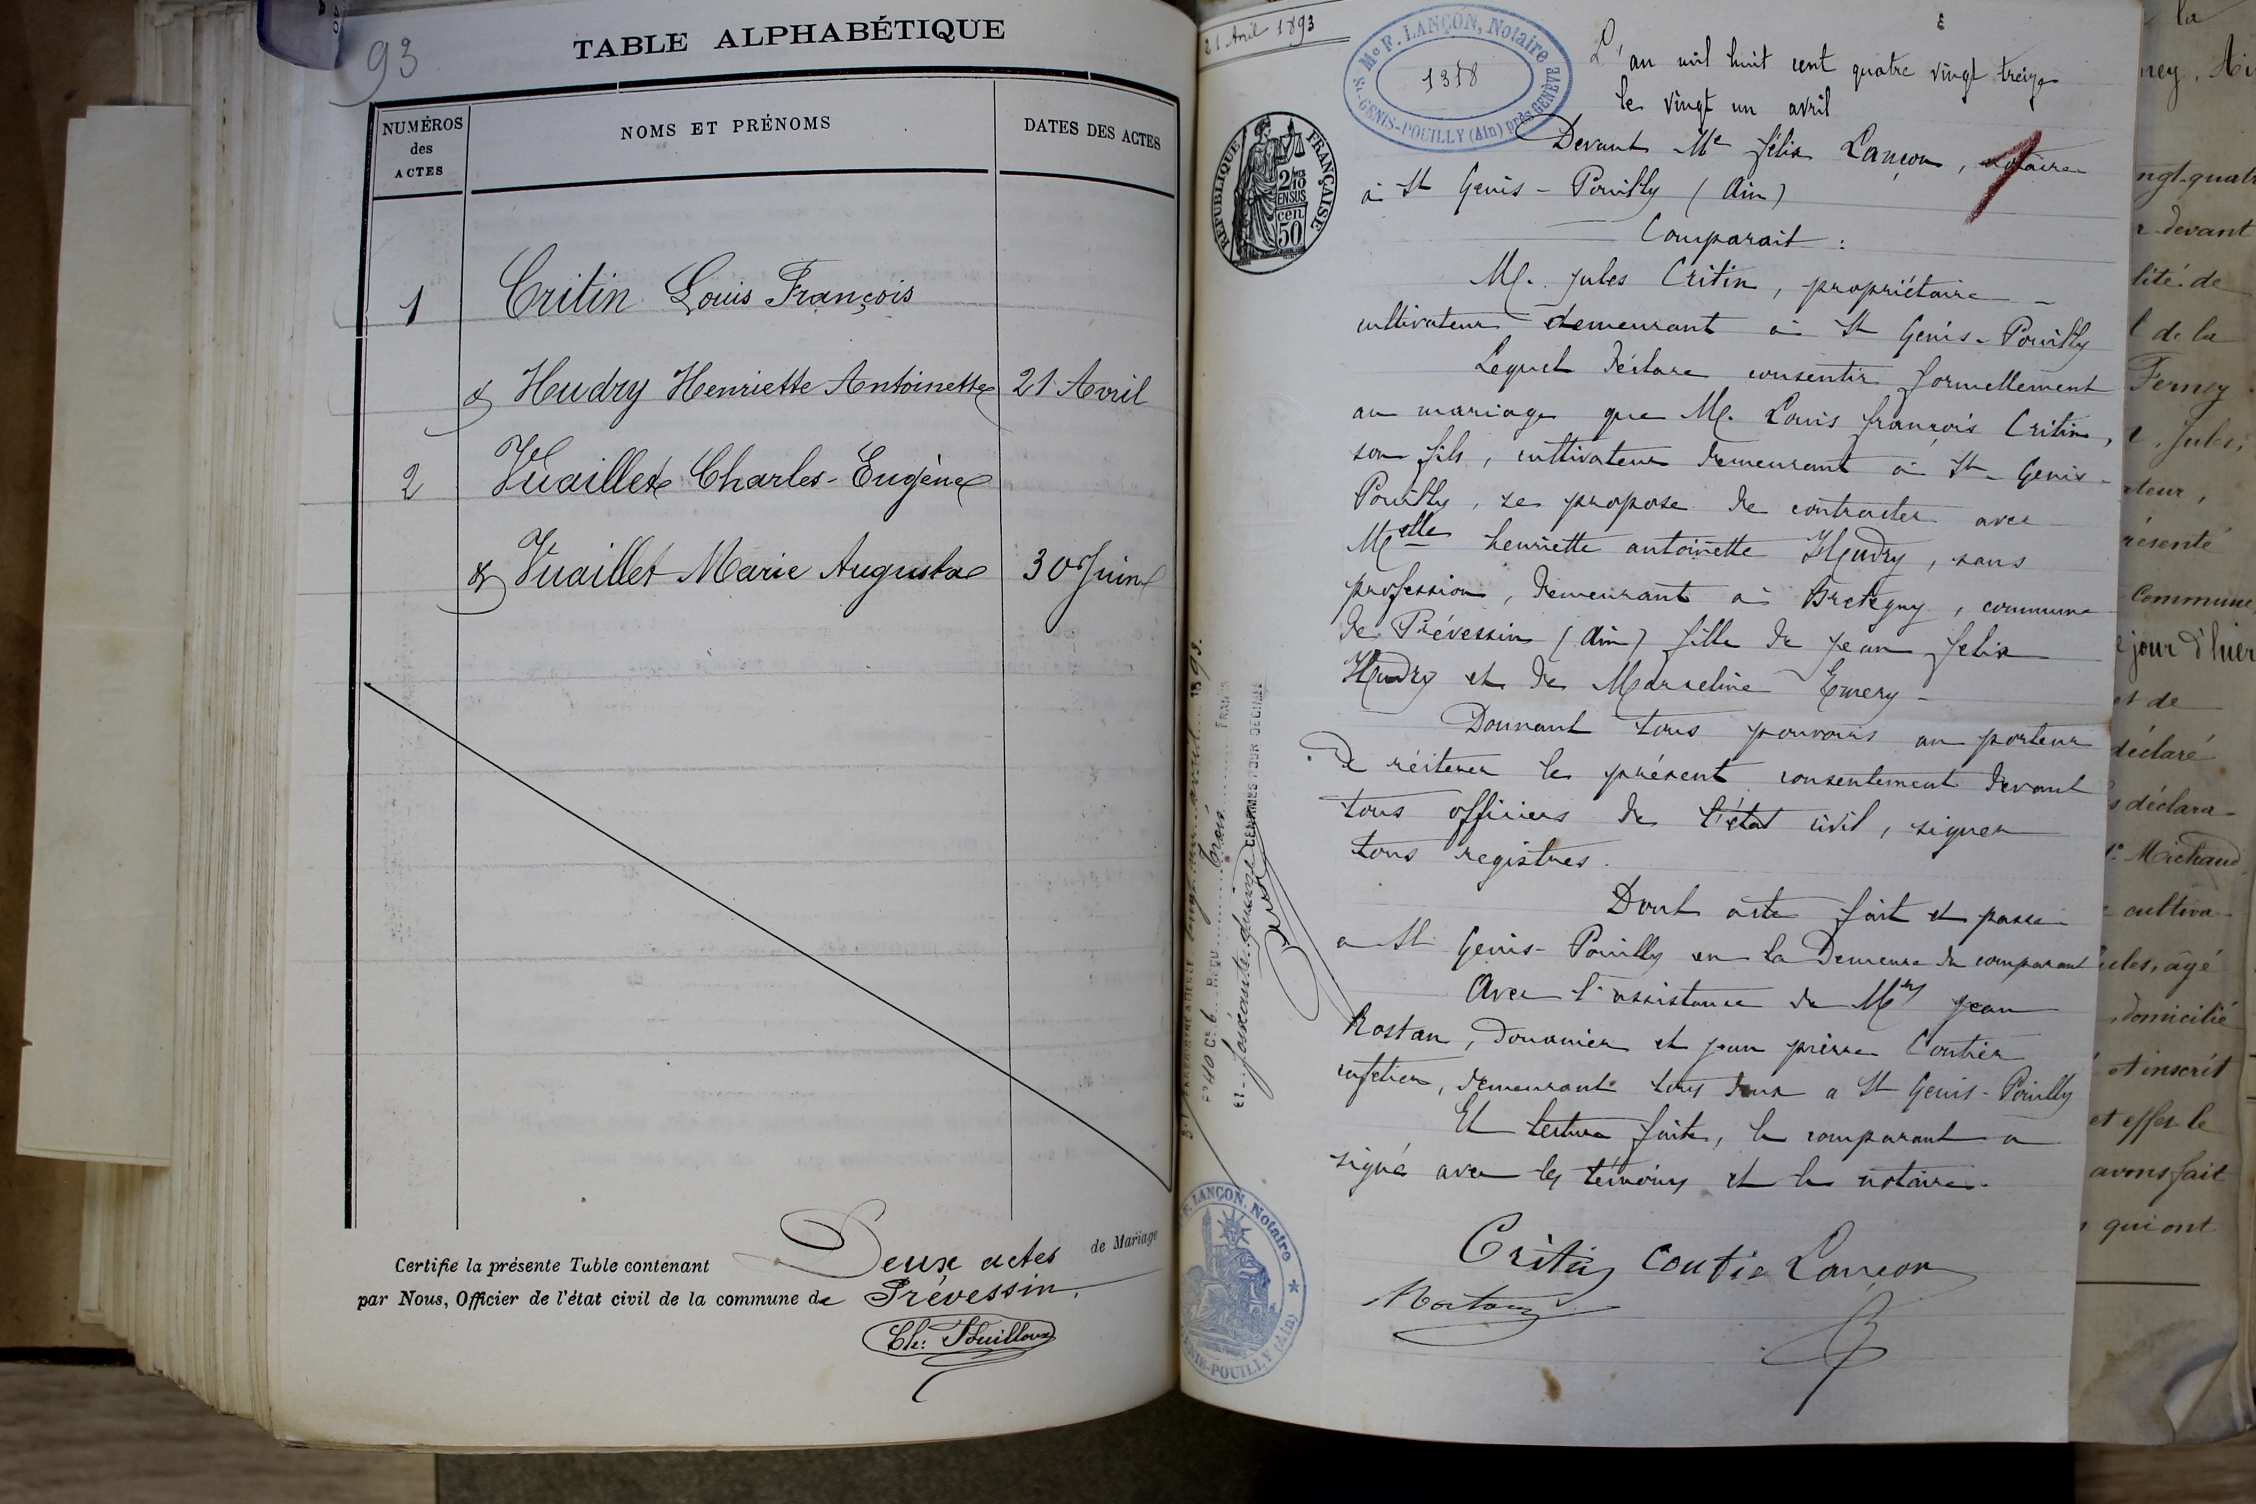 93
TABLE ALPHABÉTIQUE
NUMÉROS
des
ACTES
NOMS ET PRÉNOMS
DATES DES ACTES
1
Critin Louis François
& Hudry Henriette Antoinette
21 Avril
2
Vuaillet Charles-Eugène
& Vuaillet Marie Augusta
30 Juin
Certifie la présente Table contenant Deux actes de Mariage
par Nous, Officier de l'état civil de la commune de Prévessin.
21 Avril 1893
Mᵉ F. LANÇON, Notaire
1318
St-GENIS-POUILLY (Ain) près GENÈVE
RÉPUBLIQUE FRANÇAISE
2/10
EN SUS
cen
50
L'an mil huit cent quatre vingt treize
le vingt un avril
Devant Me félix Lançon, notaire
à St Genis-Pouilly (Ain)
Comparait :
M. Jules Critin, propriétaire
cultivateur demeurant à St Genis-Pouilly
Lequel déclare consentir formellement
au mariage que M. Louis françois Critin,
son fils, cultivateur demeurant à St-Genis-
Pouilly, se propose de contracter avec
Melle henriette antoinette Hudry, sans
profession, demeurant à Bretigny, commune
de Prévessin (Ain) fille de Jean felix
Hudry et de Marceline Emery-
Donnant tous pouvoirs au porteur
de réiterer le présent consentement devant
tous officiers de l'état civil, signer
tous registres.
Dont acte fait et passé
a St Genis-Pouilly en la demeure du comparant
Avec l'assistance de Mrs Jean
Rostan, douanier et jean pierre Coutier
cafetier, demeurant tous deux a St Genis-Pouilly
Et lecture faite, le comparant a
signé avec les témoins et le notaire.
Critin Coutie Lançon
Rostan
F. LANÇON, Notaire
GENIS-POUILLY (Ain)
la
ney,
ngt-quatr
devant
lité de
l de la
Ferney
Jules,
teur,
résenté
Commune
e jour d'hier
et de
déclaré
s déclara
Michaud
cultiva-
ules, âgé
domicilié
et inscrit
et effet le
avons fait
qui ont